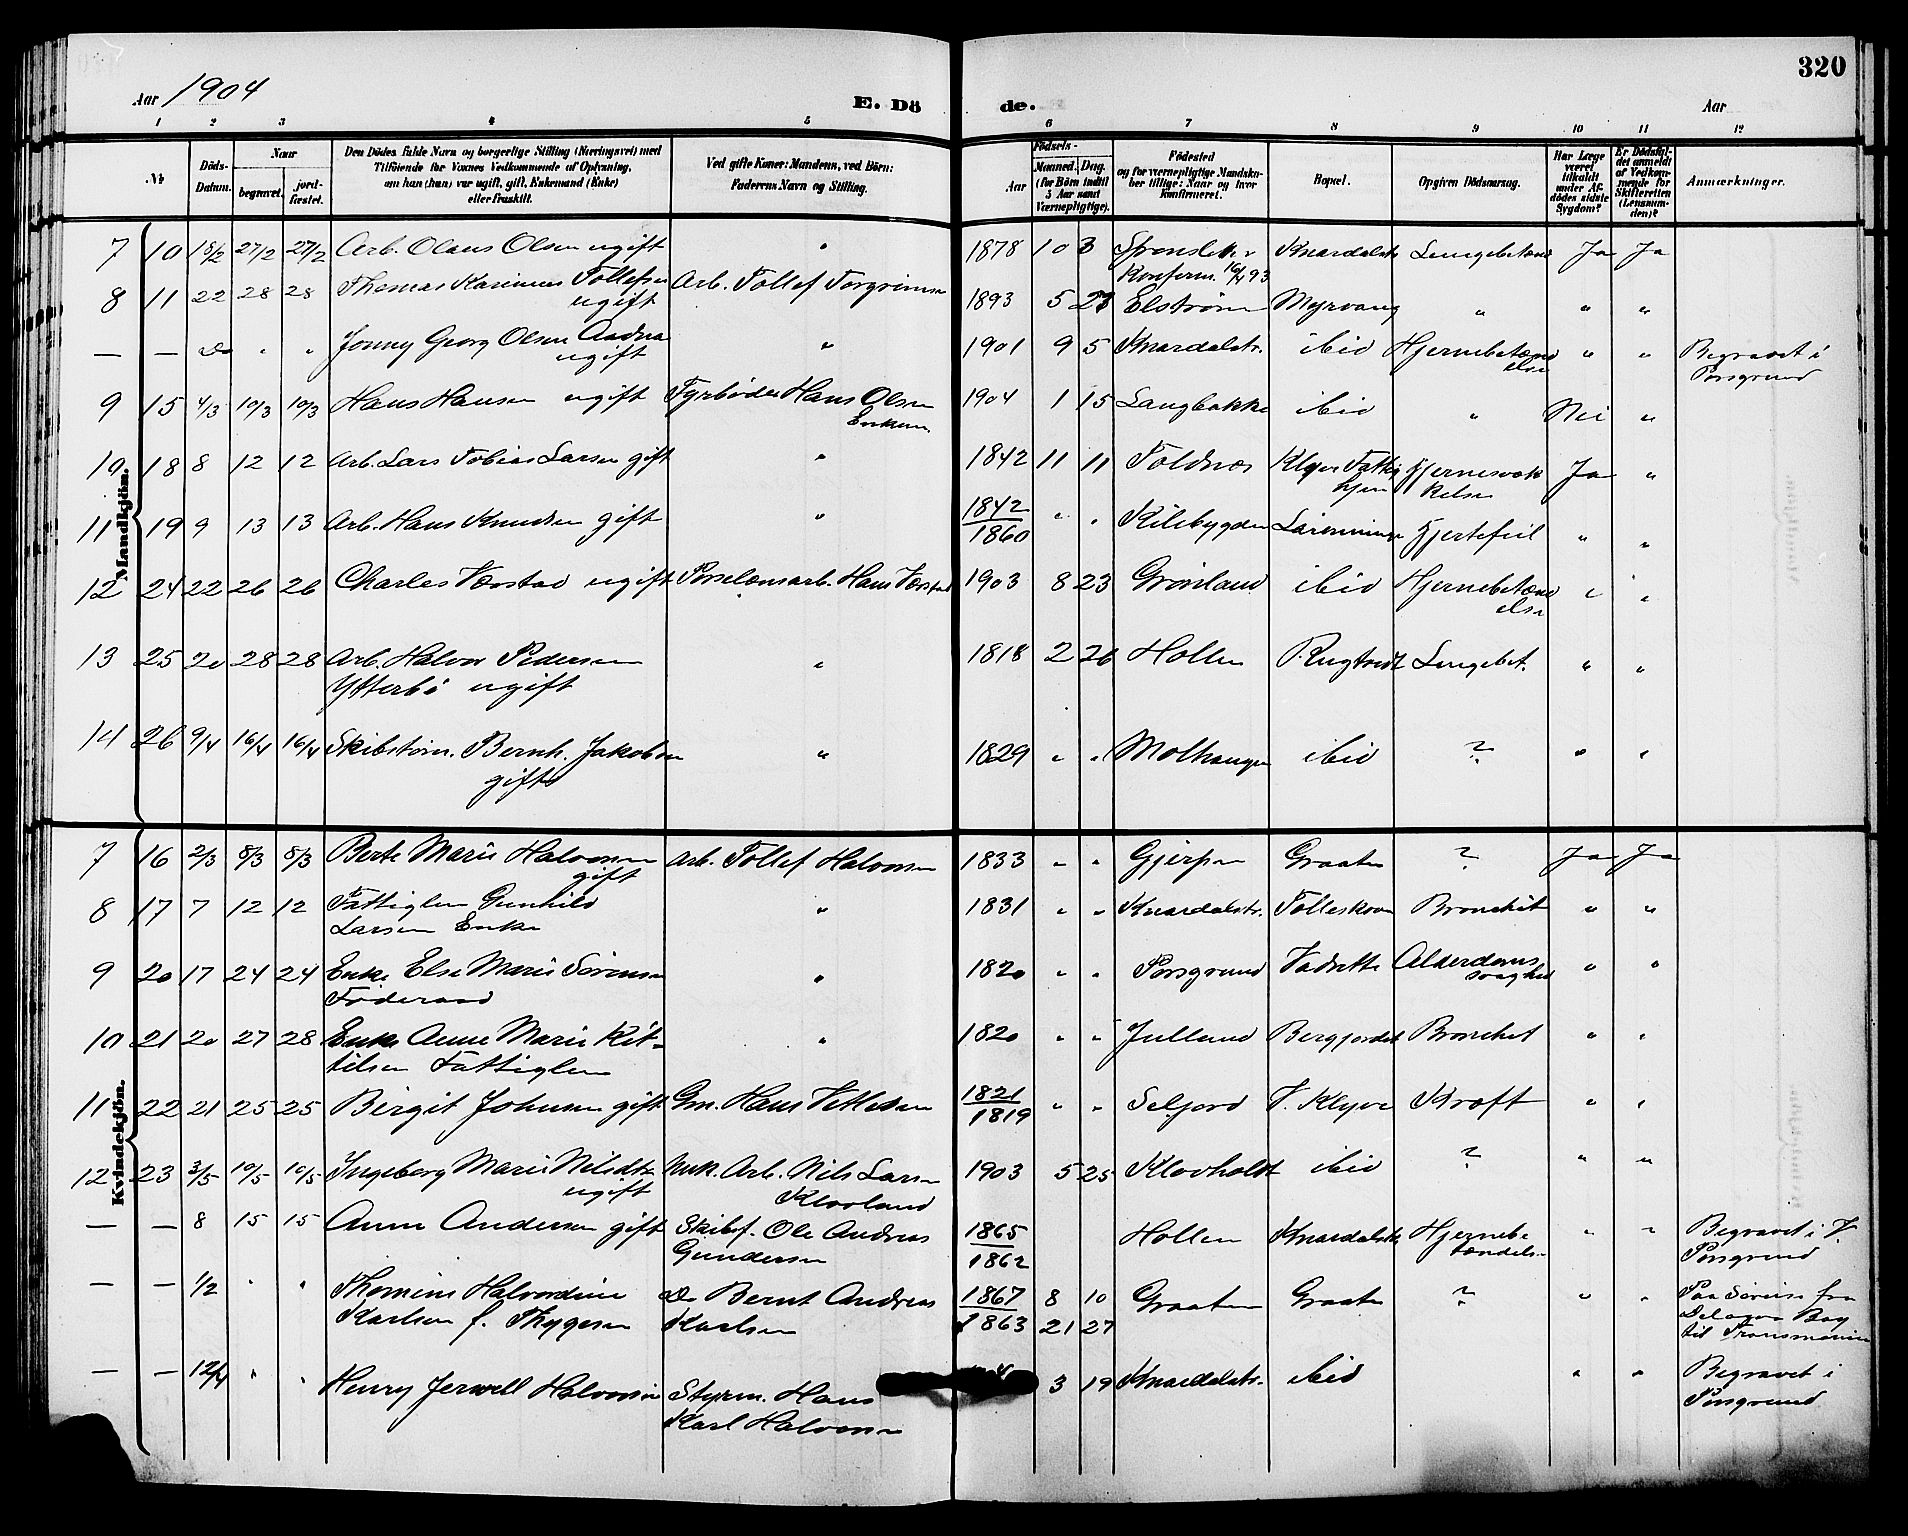 320
Aar 1904
E. Dö
de.
Aar
1 2 3 4 5 6 7 8 9 10 11 12
№
Döds-Datum.
Naar
begravet.
jord-fæstet.
Den Dödes fulde Navn og borgerlige Stilling (Næringsvei) med
Tilföiende for Voxnes Vedkommende af Oplysning,
om han (hun) var ugift, gift, Enkemand (Enke)
eller fraskilt.
Ved gifte Koner: Mandens, ved Börn:
Faderens Navn og Stilling.
Födsels-
Aar
Maaned. Dag.
(for Börn indtil
5 Aar samt
Værnepligtige).
Födested
og for værnepligtige Mandska-
ber tillige: Naar og hvor
konfirmeret.
Bopæl.
Opgiven Dödsaarsag.
Har Læge
været
tilkaldt
under Af-
dödes sidste
Sygdom?
Er Dödsfal-
det anmeldt
af Vedkom-
mende for
Skifteretten
(Lensman-
den)?
Anmærkninger.
Mandkjön.
7 10 18/2 27/2 27/2 Arb. Olaus Olsen ugift " 1878 10 3 Knardalstr. Lungebetænd Ja Ja
Konferm. 16/4 93
8 11 22 28 28 Thomas Karinius Tollefsen Arb. Tollef Torgrimsen 1893 5 23 Elstrøm Myrvang " " "
ugift
— — Do " " Jonny Georg Olsen Aadna " 1901 9 5 Knardalstr. ibid Hjernebetænd " " Begravet i
ugift else Porsgrund
9 15 4/3 10/3 10/3 Hans Hansen ugift Fyrbøder Hans Olsen 1904 1 15 Langbakke ibid " Nei "
10 18 8 12 12 Arb. Lars Tobias Larsen gift " 1842 11 11 Toldnæs Klyve Fattig Hjernesvæk Ja "
hjem kelse
11 19 9 13 13 Arb. Hans Knudsen gift " 1842 " " Kilebygden Hjertefeil " "
1860
12 24 22 26 26 Charles Værstad ugift Porselænsarb. Hans Værstad 1903 8 23 Grønland ibid Hjernebetænd " "
else
13 25 20 28 28 Arb. Halvor Pedersen " 1818 2 26 Hollen Lungebet. " "
Ytterbø ugift
14 26 9/4 16/4 16/4 Skibstøm. Bernh. Jakobsen " 1829 " " Molhaugen ibid ? " "
gift
Kvindekjön.
7 16 2/3 8/3 8/3 Berte Marie Halvorsen Arb. Tollef Halvorsen 1833 " " Gjerpen Graaten ? Ja Ja
gift
8 17 7 12 12 Fattiglem Gunhild " 1831 " " Knardalstr. Tolleskovn Bronchit " "
Larsen Enke
9 20 17 24 24 Enke Else Marie Sørensen " 1820 " " Porsgrund Vadrette Alderdoms " "
Føderaad svaghed
10 21 20 27 28 Enke Anne Marie Kit- " 1820 " " Jylland Bergjordet Bronchit " "
tilsen Fattiglem
11 22 21 25 25 Birgit Johnsen gift Gm. Hans Vetlesen 1821 " " Seljord V. Klyve Kræft " "
1819
12 23 3/5 10/5 10/5 Ingeborg Marie Nilsdtr. Arb. Nils Larsen 1903 5 25 Klovholdt ibid ? " "
ugift Klovland
— — 8 15 15 Anne Andersen gift Skibsf. Ole Andreas 1865 Hollen Knardalstr. Hjernebe " " Begravet i V.
Gundersen 1862 tændelse Porsgrund
— — 1/2 " " Thomine Halvordine Do Bernt Andreas 1867 8 10 Graaten Graaten ? " " Paa Søreise fra
Karlsen f. Thygesen Karlsen 1863 21 27 Delagoa Bay
til
— — 12/4 " " Henry Jerwell Halvorsen Styrm. Hans 3 19 Knardalstr. ibid " " Begravet i
Karl Halvorsen Porsgrund